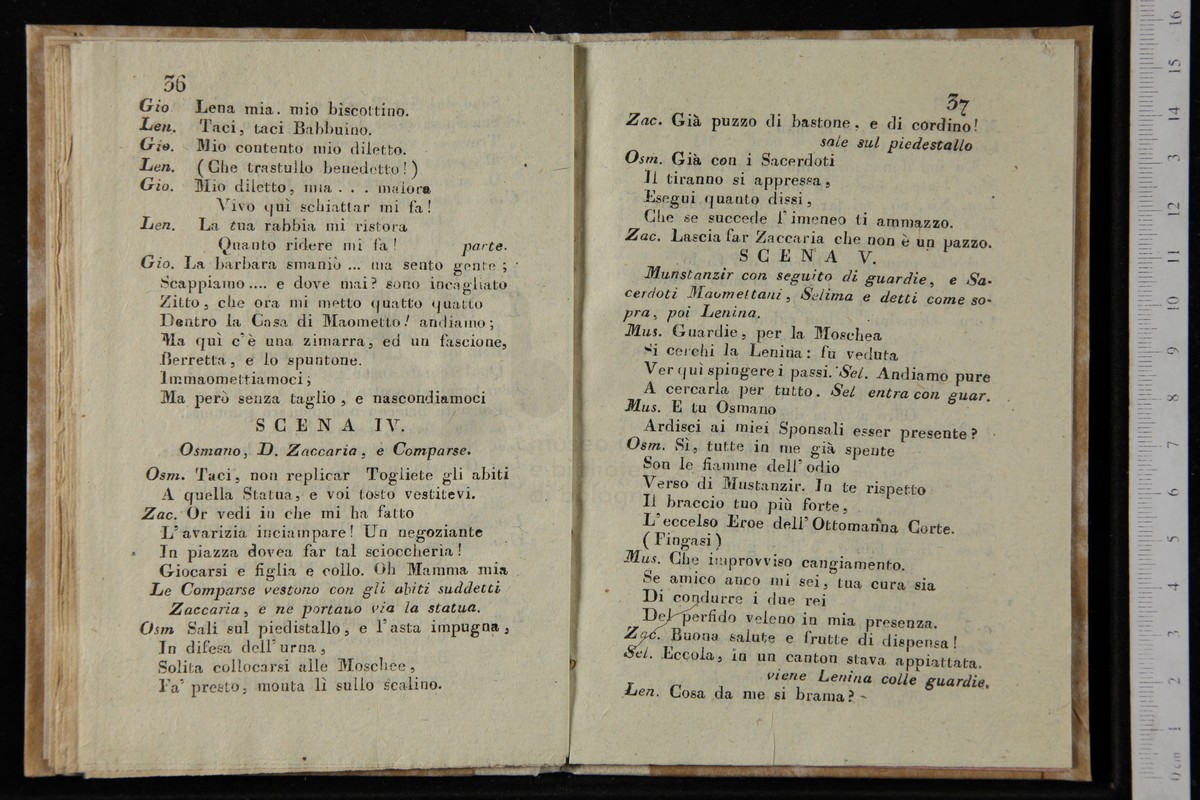 36
Gio Lena mia. mio biscottino.
Len. Taci, taci Babbuino.
Gio. Mio contento mio diletto.
Len. (Che trastullo benedetto!)
Gio. Mio diletto, mia . . . maiora
Vivo quì schiattar mi fa!
Len. La tua rabbia mi ristora
Quanto ridere mi fa! parte.
Gio. La barbara smaniò ... ma sento gente;
Scappiamo .... e dove mai? sono incagliato
Zitto, che ora mi metto quatto quatto
Dentro la Casa di Maometto! andiamo;
Ma quì c'è una zimarra, ed un fascione,
Berretta, e lo spuntone.
Immaomettiamoci;
Ma però senza taglio, e nascondiamoci
SCENA IV.
Osmano, D. Zaccaria, e Comparse.
Osm. Taci, non replicar Togliete gli abiti
A quella Statua, e voi tosto vestitevi.
Zac. Or vedi in che mi ha fatto
L'avarizia inciampare! Un negoziante
In piazza dovea far tal scioccheria!
Giocarsi e figlia e collo. Oh Mamma mia
Le Comparse vestono con gli abiti suddetti
Zaccaria, e ne portano via la statua.
Osm Sali sul piedistallo, e l'asta impugna,
In difesa dell'urna,
Solita collocarsi alle Moschee,
Fa' presto, monta lì sullo scalino.
37
Zac. Già puzzo di bastone, e di cordino!
sale sul piedestallo
Osm. Già con i Sacerdoti
Il tiranno si appressa,
Esegui quanto dissi,
Che se succede l'imeneo ti ammazzo.
Zac. Lascia far Zaccaria che non è un pazzo.
SCENA V.
Munstanzir con seguito di guardie, e Sa-
cerdoti Maomettani, Selima e detti come so-
pra, poi Lenina.
Mus. Guardie, per la Moschea
Si cerchi la Lenina: fu veduta
Ver quì spingere i passi. Sel. Andiamo pure
A cercarla per tutto. Sel entra con guar.
Mus. E tu Osmano
Ardisci ai miei Sponsali esser presente?
Osm. Sì, tutte in me già spente
Son le fiamme dell'odio
Verso di Mustanzir. In te rispetto
Il braccio tuo più forte,
L'eccelso Eroe dell'Ottomanna Corte.
(Fingasi)
Mus. Che improvviso cangiamento.
Se amico anco mi sei, tua cura sia
Di condurre i due rei
Del perfido veleno in mia presenza.
Zac. Buona salute e frutte di dispensa!
Sel. Eccola, in un canton stava appiattata.
viene Lenina colle guardie.
Len. Cosa da me si brama? -